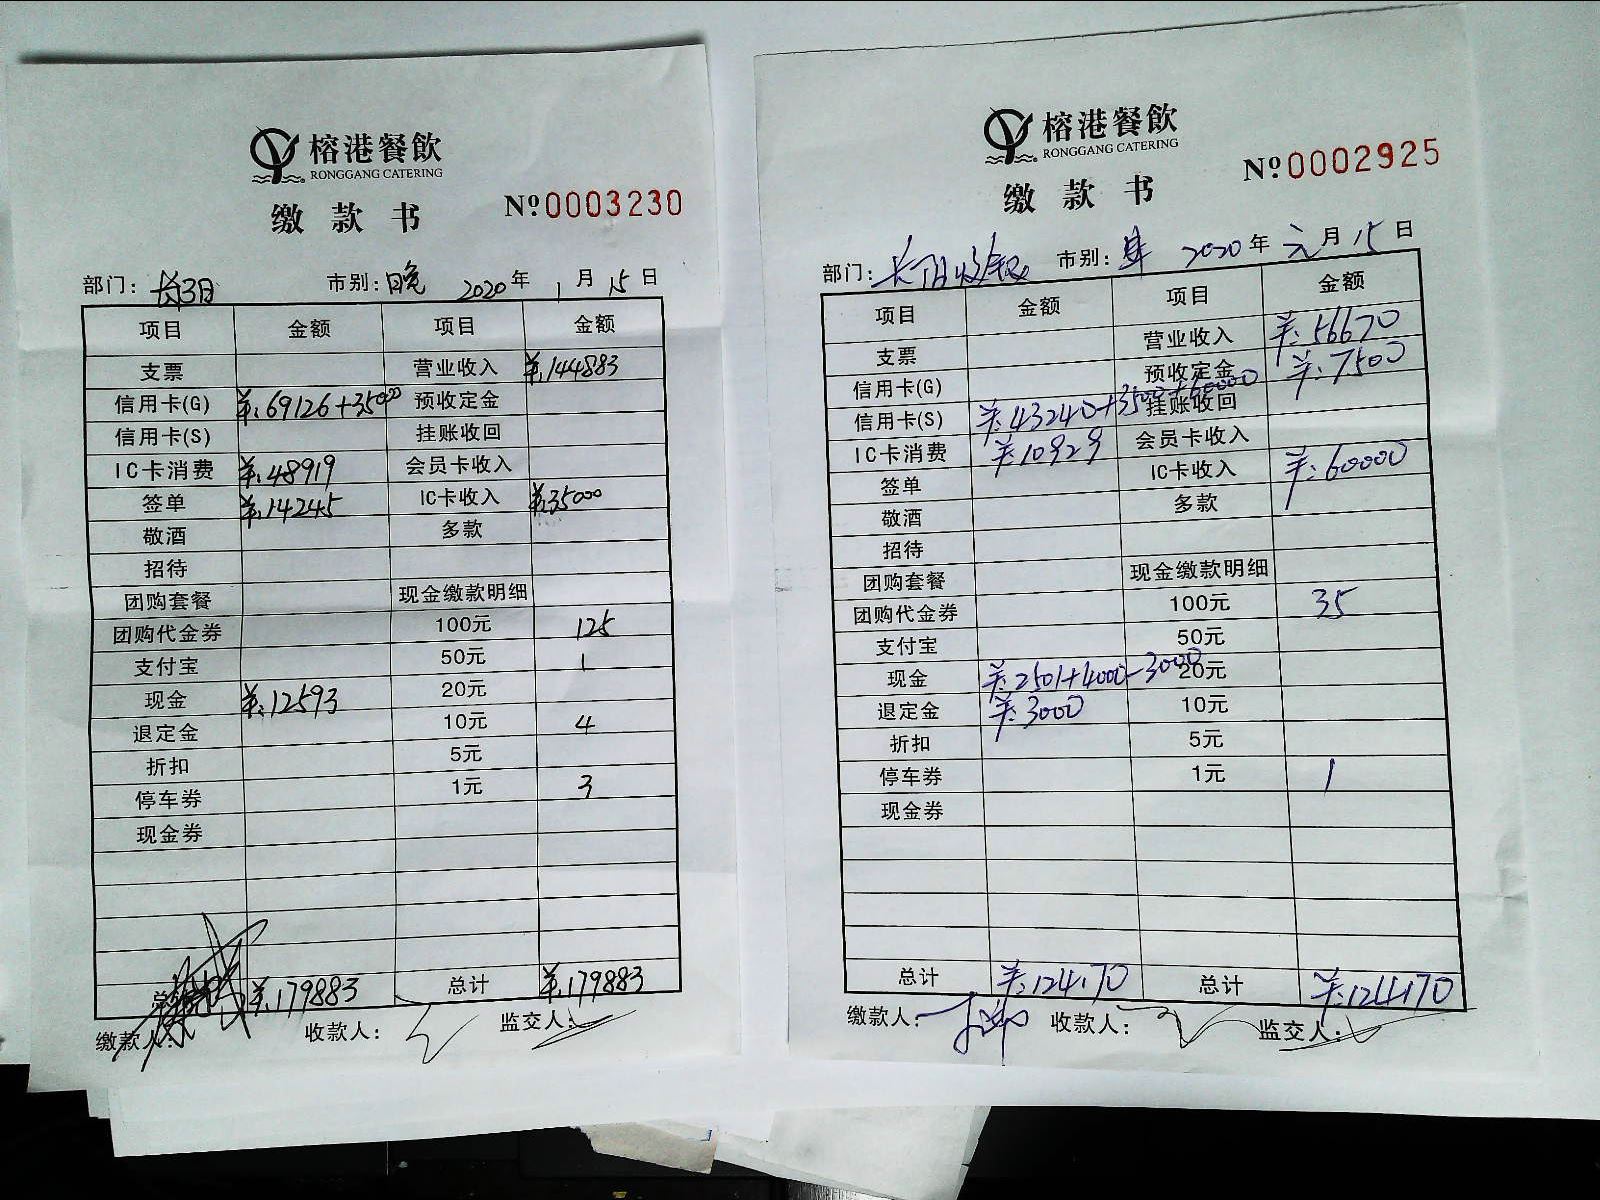 榕港餐飲
RONGGANG CATERING
缴款书 №0003230
部门: 市别: 晚 2020年1月15日
项目 金额 项目 金额
支票 营业收入 ¥:144883
信用卡(G) ¥:69126+35000 预收定金
信用卡(S) 挂账收回
IC卡消费 ¥:48919 会员卡收入
签单 ¥:14245 IC卡收入 ¥:35000
敬酒 多款
招待
团购套餐 现金缴款明细
团购代金券 100元 125
支付宝 50元 1
现金 ¥:12593 20元
退定金 10元 4
折扣 5元
停车券 1元 3
现金券
总计 ¥:179883 总计 ¥:179883
缴款人: 收款人: 监交人:
榕港餐飲
RONGGANG CATERING
缴款书 №0002925
部门: 市别: 2020年元月15日
项目 金额 项目 金额
支票 营业收入 ¥:56670
信用卡(G) 预收定金 ¥:7500
信用卡(S) ¥:43240+3500+60000 挂账收回
IC卡消费 ¥:10929 会员卡收入
签单 IC卡收入 ¥:60000
敬酒 多款
招待
团购套餐 现金缴款明细
团购代金券 100元 35
支付宝 50元
现金 ¥:2501+4000-3000 20元
退定金 ¥:3000 10元
折扣 5元
停车券 1元 1
现金券
总计 ¥:124170 总计 ¥:124170
缴款人: 收款人: 监交人: